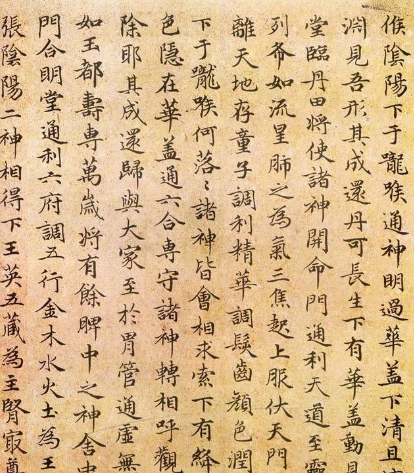 候陰陽下于嚨喉通神明過華蓋下清且
淵見吾形其成還丹可長生下有華蓋動見
堂臨丹田將使諸神開命門通利天道至靈
列布如流星肺之為氣三焦起上服伏天門
離天地存童子調利精華調髮齒顏色潤
下于嚨喉何落〻諸神皆會相求索下有絳
色隱在華蓋通六合專守諸神轉相呼觀
除耶其成還歸與大家至於胃管通虛無
如王都壽專萬歲將有餘脾中之神舍中
門合明堂通利六府調五行金木水火土為王
張陰陽二神相得下王英五藏為主腎寂尊